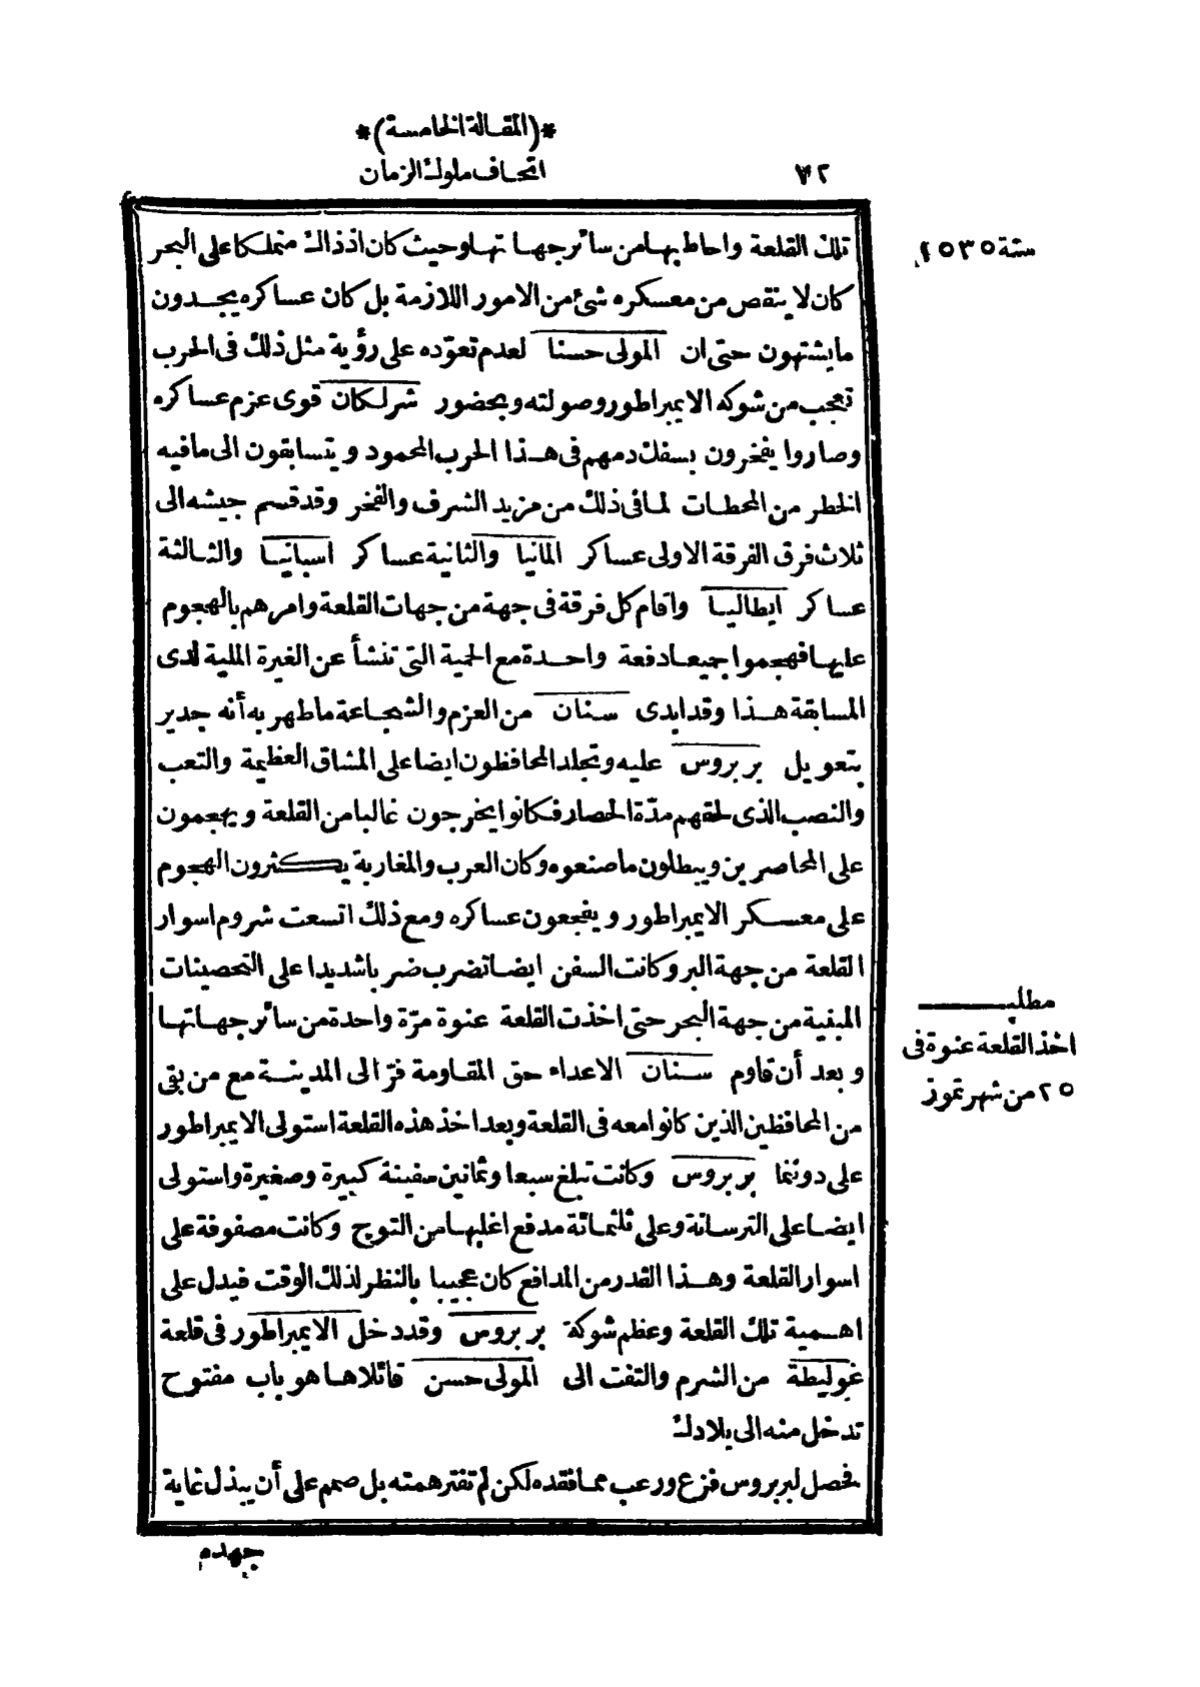 *(المقالة الخامسة)*
٧٢ اتحاف ملوك الزمان
سنة ١٥٣٥
تلك القلعة واحاط بها من سائر جهاتها وحيث كان اذ ذاك متملكا على البحر
كان لا ينقص من معسكره شئ من الامور اللازمة بل كان عساكره يجدون
ما يشتهون حتى ان المولى حسنا لعدم تعوّده على رؤية مثل ذلك فى الحرب
تعجب من شوكة الايمبراطور وصولته وبحضور شرلكان قوى عزم عساكره
وصاروا يفخرون بسفك دمهم فى هذا الحرب المحمود ويتسابقون الى ما فيه
الخطر من المحطات لما فى ذلك من مزيد الشرف والفخر وقد قسم جيشه الى
ثلاث فرق الفرقة الاولى عساكر المانيا والثانية عساكر اسبانيا والثالثة
عساكر ايطاليا واقام كل فرقة فى جهة من جهات القلعة وامرهم بالهجوم
عليها فهجموا جميعا دفعة واحدة مع الحمية التى تنشأ عن الغيرة الملية لدى
المسابقة هذا وقد ابدى سنان من العزم والشجاعة ما ظهر به أنه جدير
بتعويل بربروس عليه وتجلد المحافظون ايضا على المشاق العظيمة والتعب
والنصب الذى لحقهم مدّة الحصار فكانوا يخرجون غالبا من القلعة ويهجمون
على المحاصرين ويبطلون ما صنعوه وكان العرب والمغاربة يكثرون الهجوم
على معسكر الايمبراطور ويفجعون عساكره ومع ذلك اتسعت شروم اسوار
القلعة من جهة البر وكانت السفن ايضا تضرب ضربا شديدا على التحصينات
المبنية من جهة البحر حتى اخذت القلعة عنوة مرّة واحدة من سائر جهاتها
وبعد أن قاوم سنان الاعداء حق المقاومة فرّ الى المدينة مع من بقى
من المحافظين الذين كانوا معه فى القلعة وبعد اخذ هذه القلعة استولى الايمبراطور
على دوننما بربروس وكانت تبلغ سبعا وثمانين سفينة كبيرة وصغيرة واستولى
ايضا على الترسانة وعلى ثلثمائة مدفع اغلبها من التوج وكانت مصفوفة على
اسوار القلعة وهذا القدر من المدافع كان عجيبا بالنظر لذلك الوقت فيدل على
اهمية تلك القلعة وعظم شوكة بربروس وقد دخل الايمبراطور فى قلعة
غوليطة من الشرم والتفت الى المولى حسن قائلا ها هو باب مفتوح
تدخل منه الى بلادك
فحصل لبربروس فزع ورعب مما فقده لكن لم تفتر همته بل صمم على أن يبذل غاية
جهده
مطلب
اخذ القلعة عنوة فى
٢٥ من شهر تموز